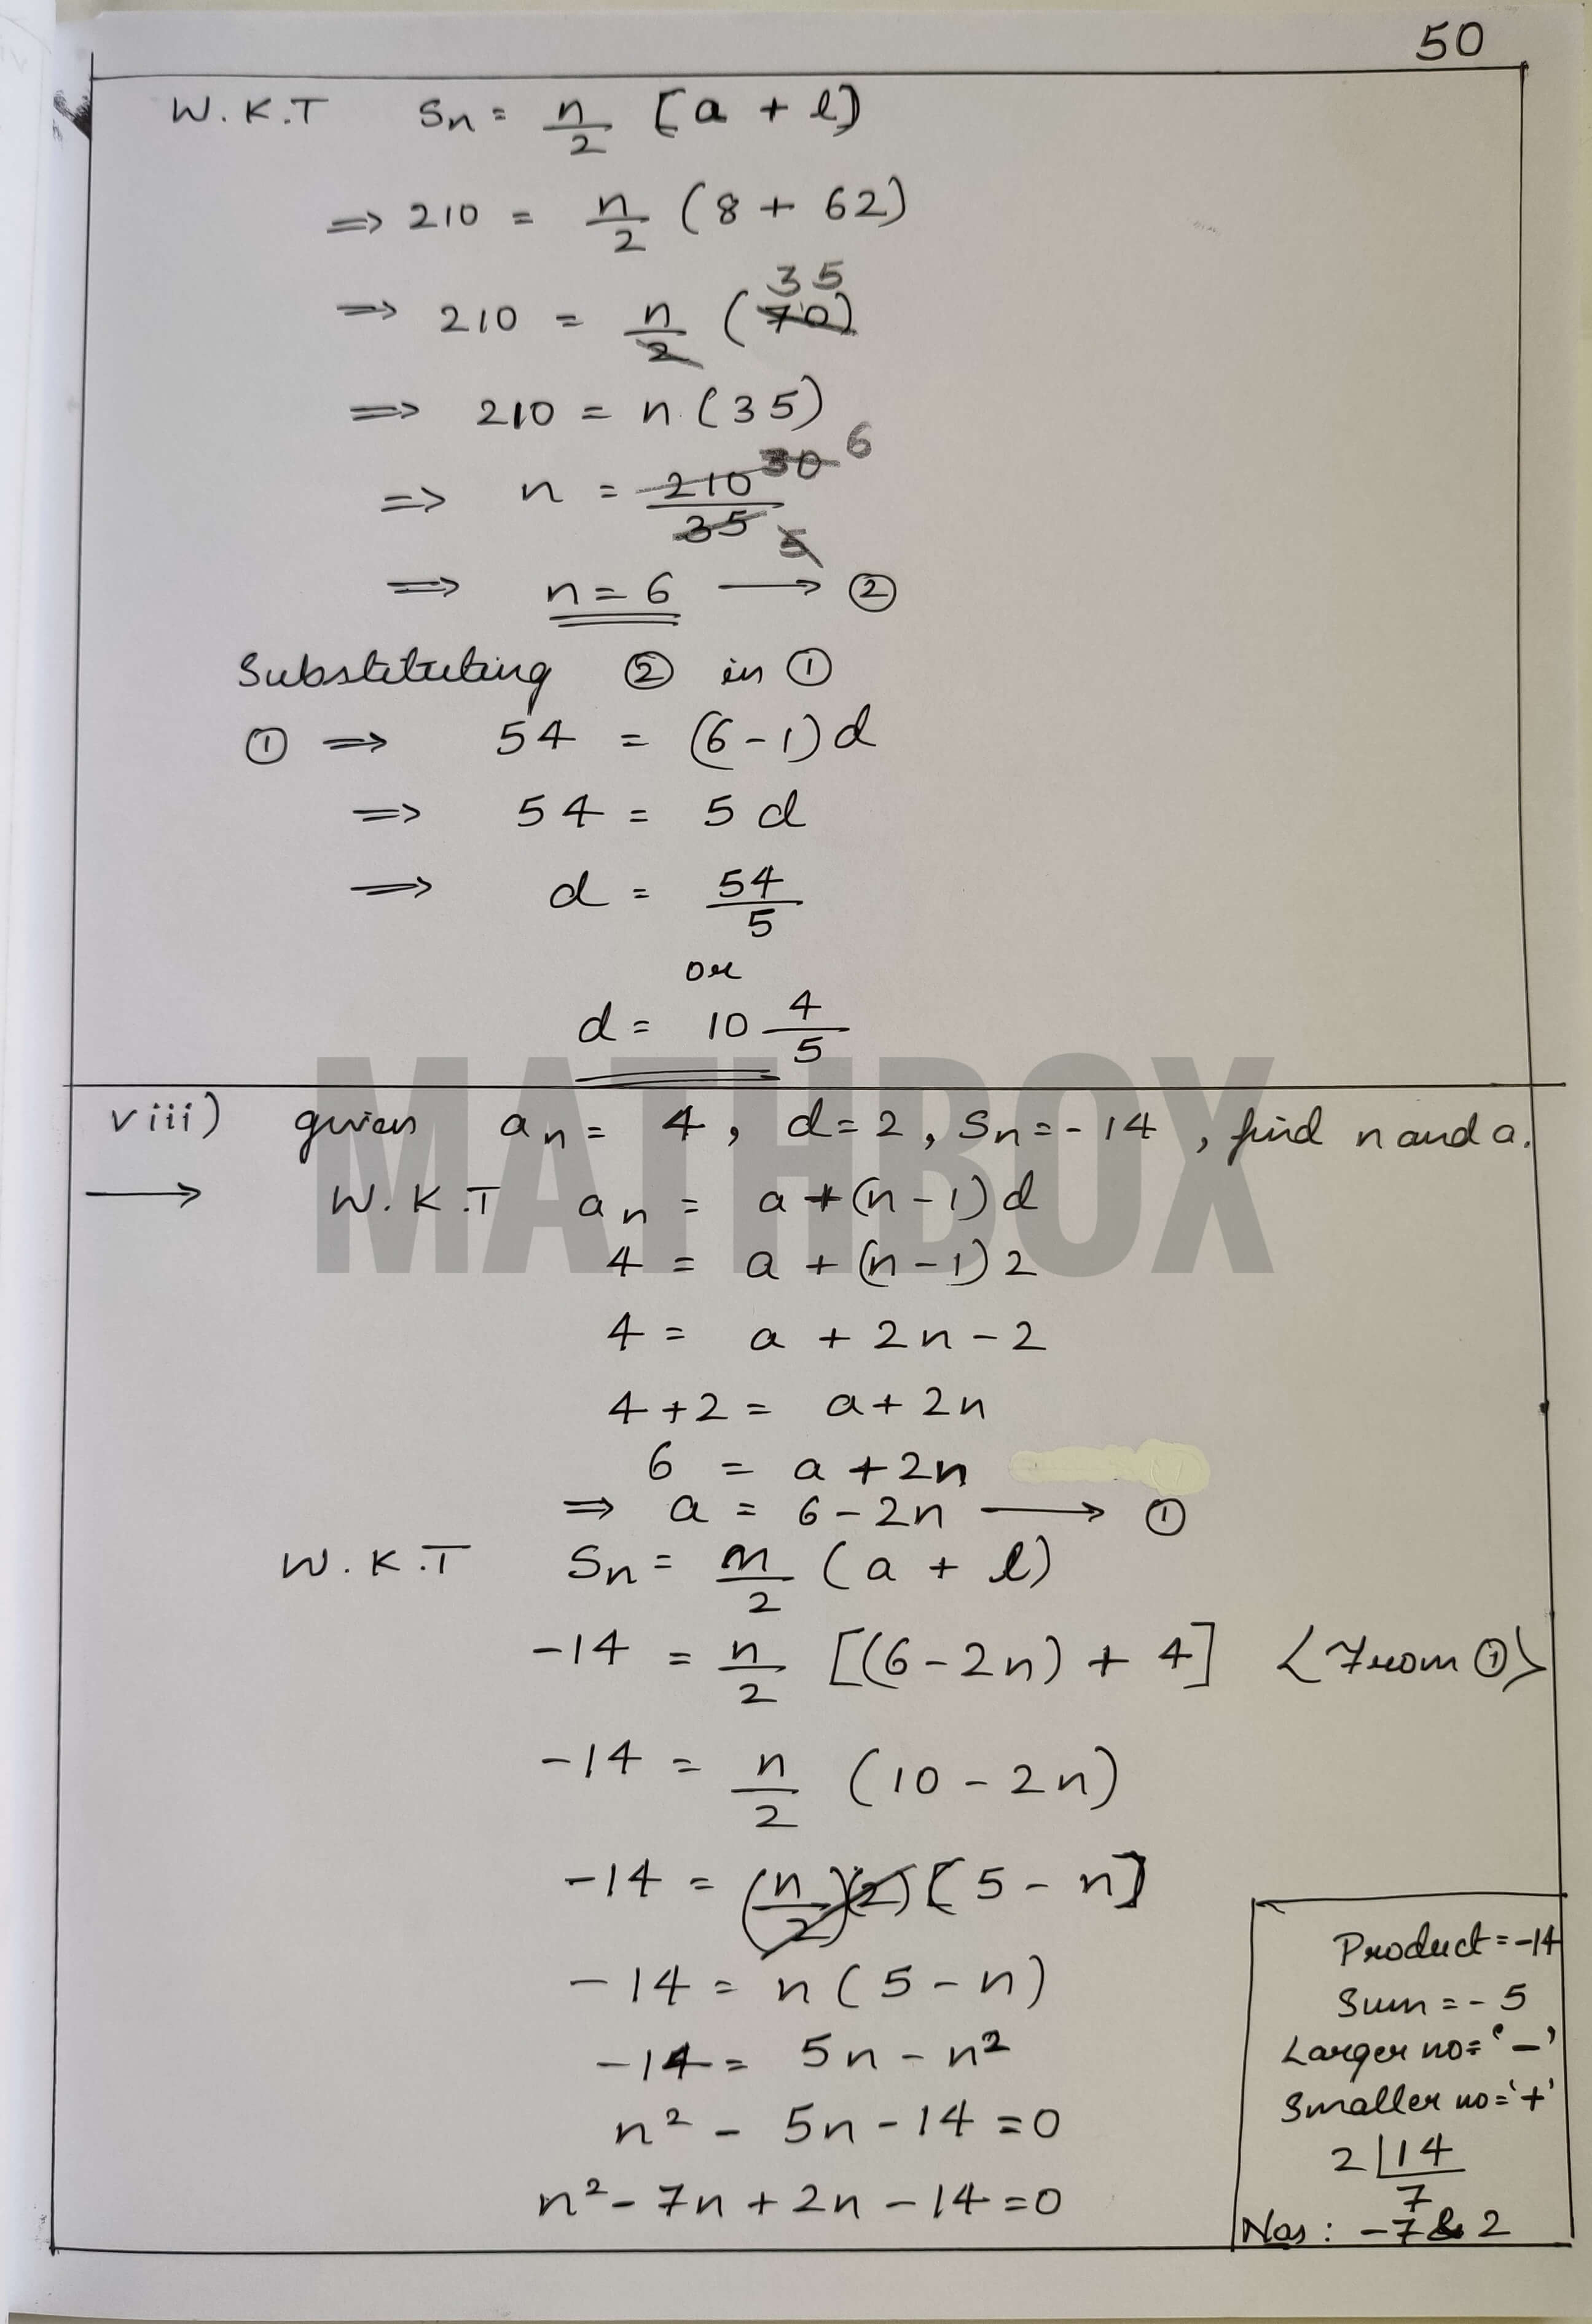 50
W.K.T Sn = n/2 [a + l]
⇒ 210 = n/2 (8 + 62)
35
⇒ 210 = n/2 (70)
⇒ 210 = n(35)
30 6
⇒ n = 210/35
5
⇒ n = 6 ⟶ ②
Substituting ② in ①
① ⇒ 54 = (6-1)d
⇒ 54 = 5d
⇒ d = 54/5
or
d = 10 4/5
MATHBOX
viii) given an = 4, d=2, Sn=-14, find n and a.
⟶ W.K.T an = a+(n-1)d
4 = a + (n-1)2
4 = a + 2n - 2
4+2 = a+2n
6 = a+2n
⇒ a = 6-2n ⟶ ①
W.K.T Sn = n/2 (a + l)
-14 = n/2 [(6-2n) + 4] <From ①>
-14 = n/2 (10-2n)
-14 = (n/2)(2)[5-n]
-14 = n(5-n)
-14 = 5n-n²
n² - 5n-14=0
n²-7n+2n-14=0
Product=-14
Sum=-5
Larger no='-'
Smaller no='+'
2|14
7
Nos: -7&2